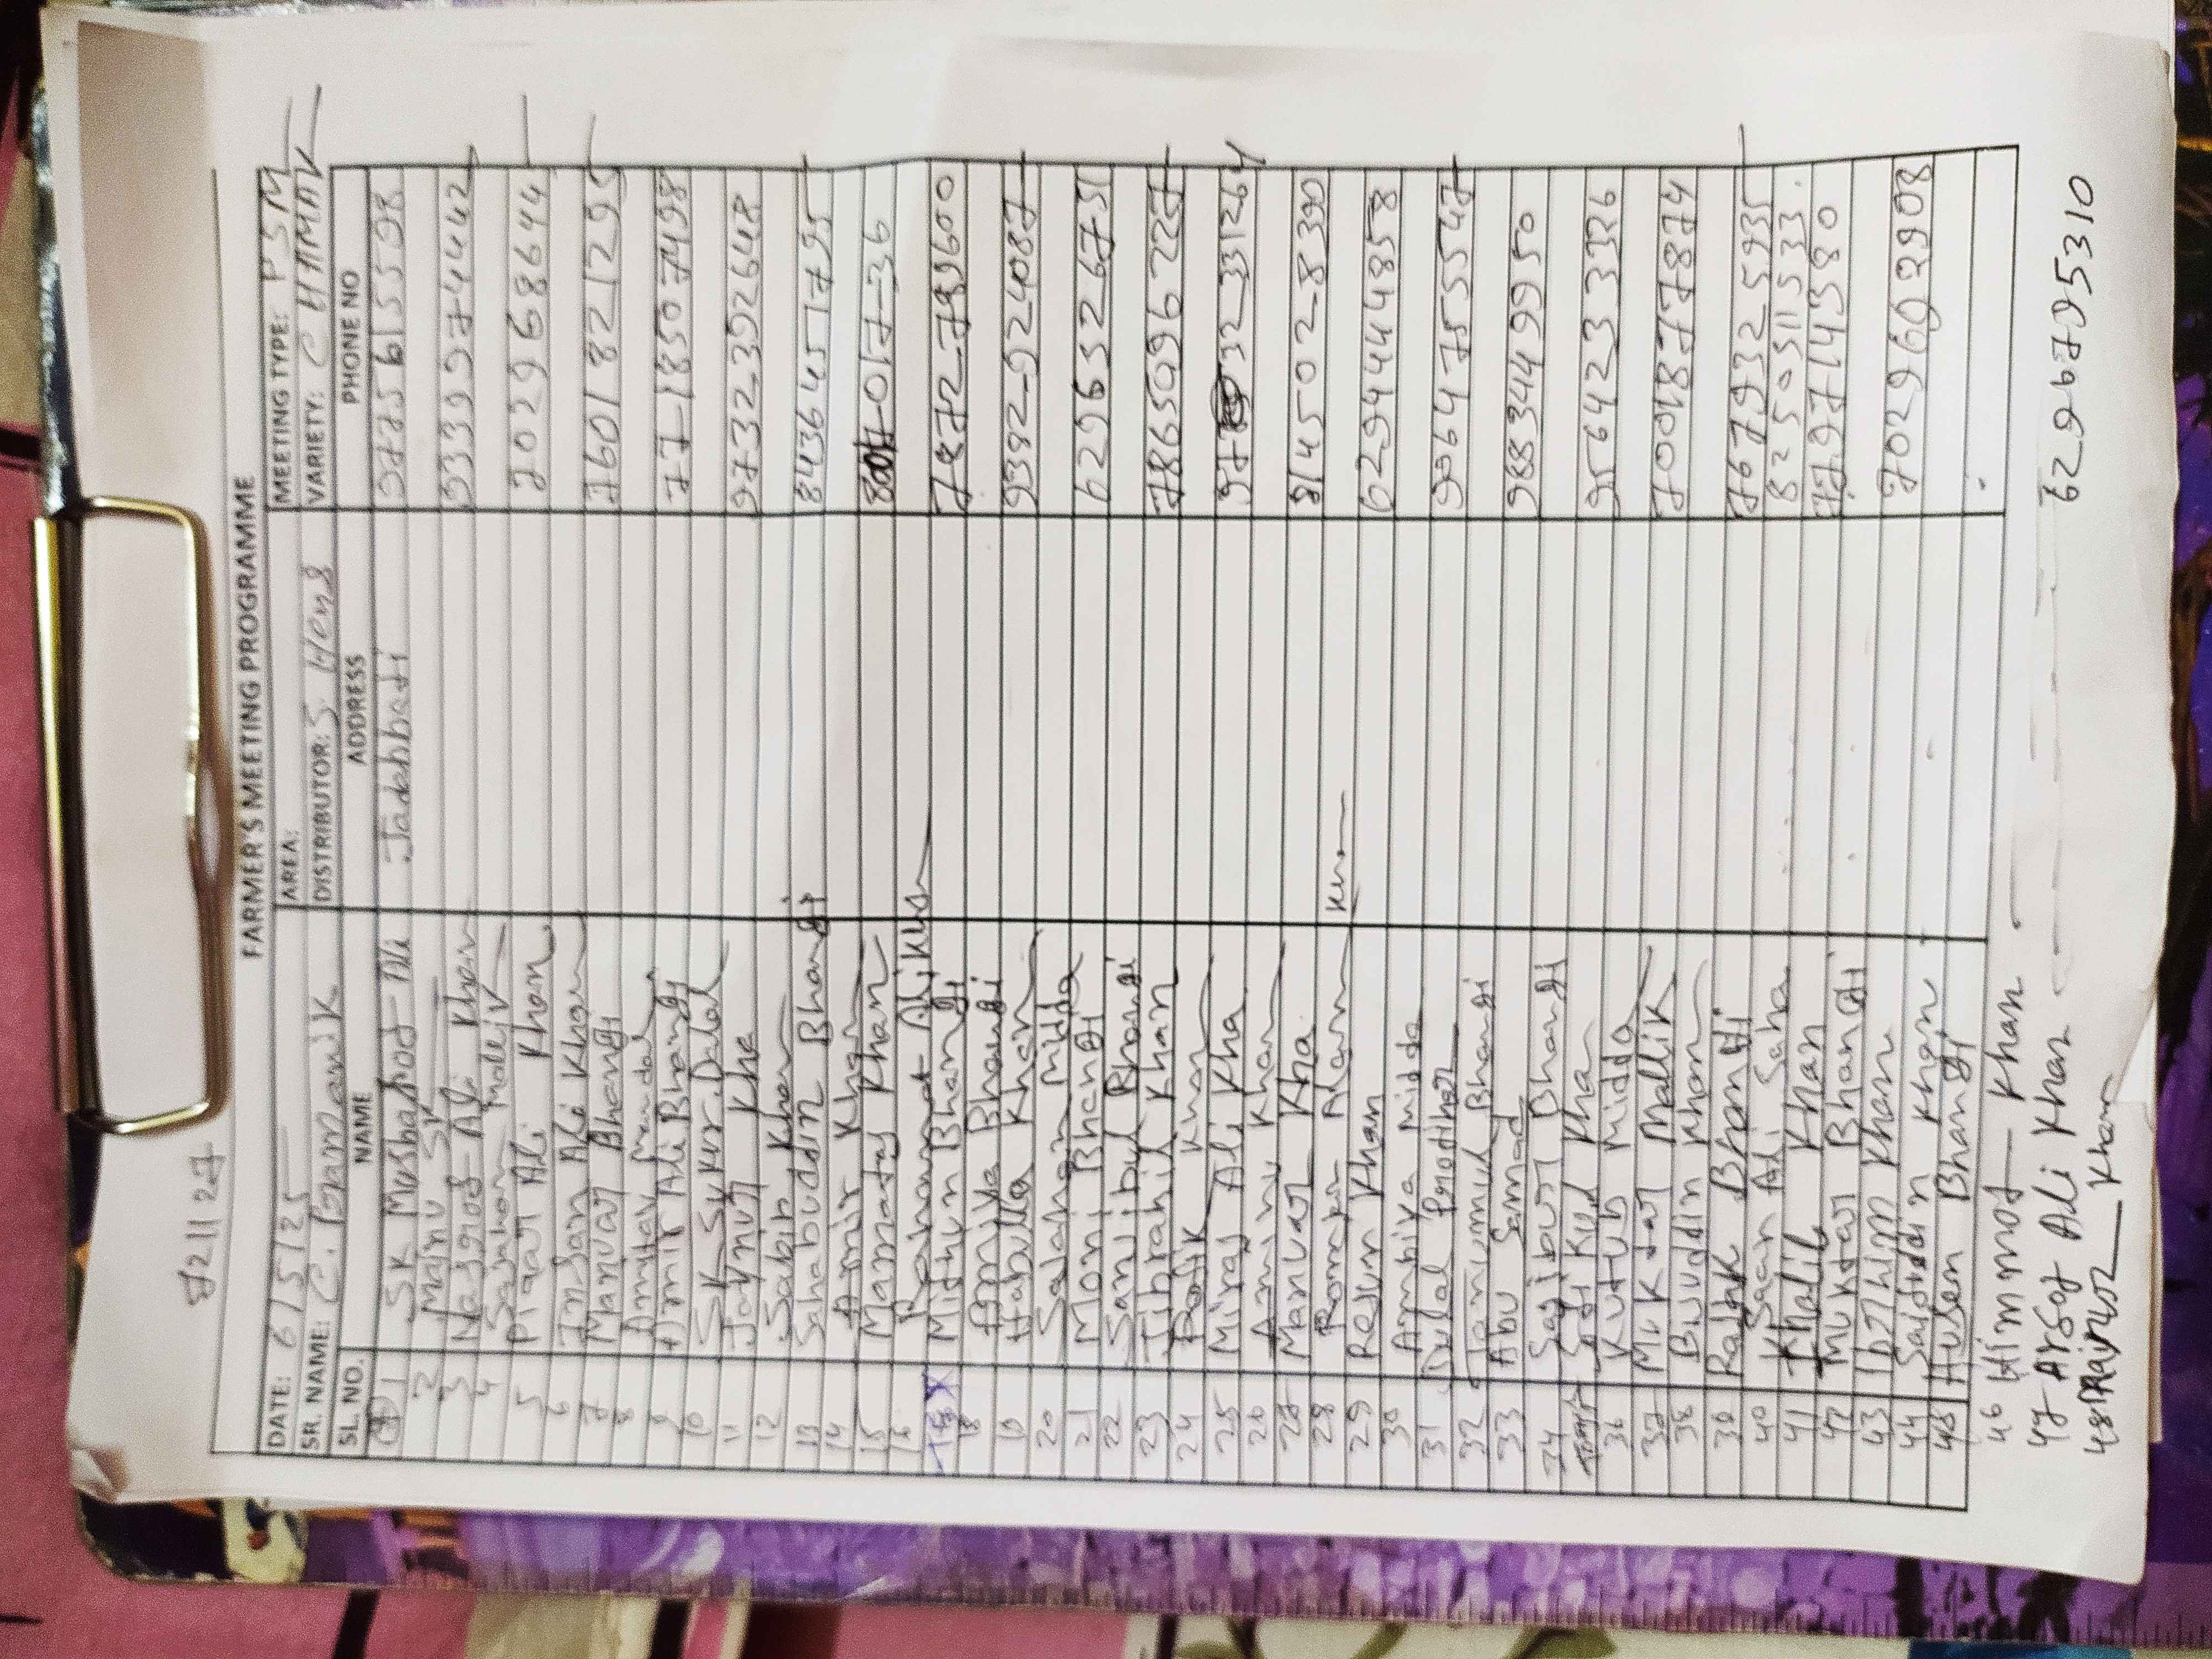 J2/1127
FARMER'S MEETING PROGRAMME
DATE: 6/5/25 AREA: MEETING TYPE: PSM
SR. NAME: C. Pramanik DISTRIBUTOR: S Hens VARIETY: CHAMAK
SL. NO. NAME ADDRESS PHONE NO
1 SK Musharod Ali Jadabbati 9775615598
2 Mainu SK
3 Nasrod Ali Khan 9339974442
4 Santhon Maleik
5 Piaar Ali Khan 7029688644
6 Insan Ali Khan
7 Manuar Bhangi 7601821295
8 Amitav Mandal
9 Amir Ali Bhangi 77-18507498
10 SK Sukur Dalal
11 Jaynur Kha 9732392648
12 Sabir Khan
13 Sahabuddin Bhangi 8436451795
14 Amir Khan
15 Mamataj Khan 8001-017-36
16 Ali Khan
18 Midhun Bhangi 7872-789600
Ambiya Bhangi
19 Habulla Khan 9382-924087
20 Salaman Midda
21 Moni Bhangi 6296526751
22 Sanjibul Bhangi
23 Jibrahil Khan 7865096227
24 Rafik Khan
25 Miraj Ali Kha 9732331264
26 Aminu Khan
27 Manuar Kha 81450-28390
28 Romajan Alam Khan
29 Rejun Khan 6294444858
30 Ambiya Midda
31 Dulal Prodihar 9064755547
32 Tanumul Bhangi
33 Abu Samad 9883449950
34 Sajibur Bhangi
Sadi Kul Kha 9564233326
36 Kutub Midda
37 Muktar Mallik 7001877874
38 Bujuddin Khan
39 Rajhik Bhangi 7679325935
40 Saan Ali Saha 8250511533
41 Khalil Khan 779714380
42 Muktar Bhangi
43 Ibrihim Khan 7029602908
44 Saiduddin Khan
45 Husen Bhangi
46 Himmot Khan
47 Arsaf Ali Khan 6296795310
48 Rainur Khan